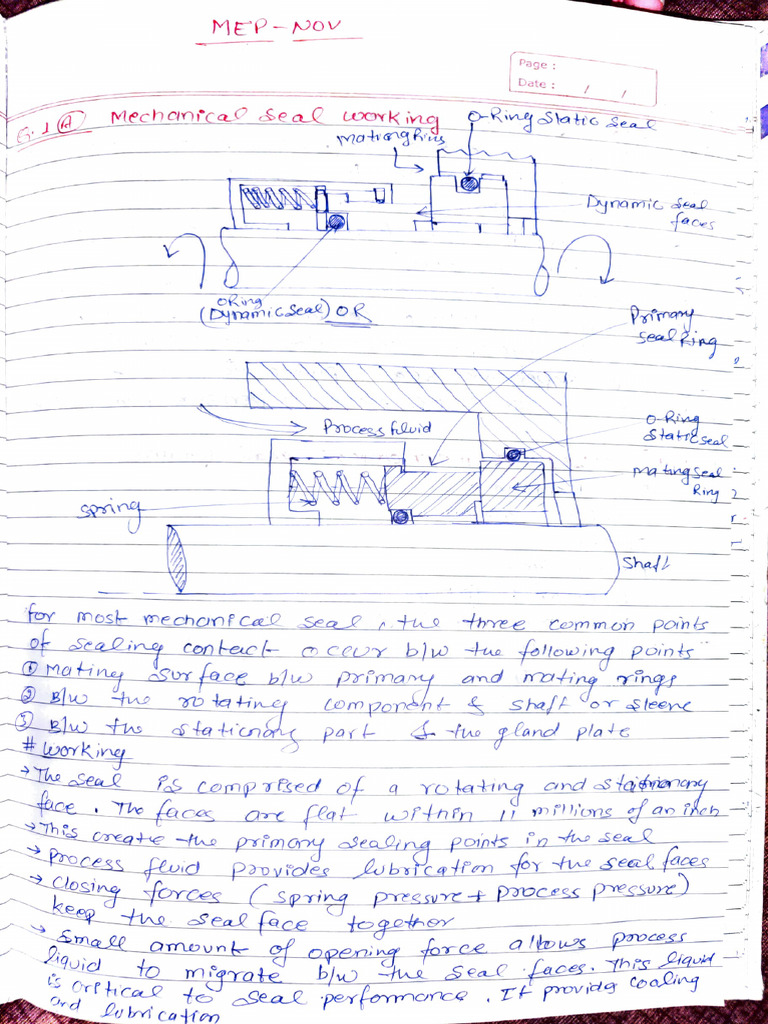 MEP-NOV
Page :
Date : / /
G.1 (A) Mechanical seal working
O-Ring Static Seal
Mating Ring
Dynamic seal
faces
O Ring
(Dynamic seal) OR
Primary
seal Ring
Process fluid
O-Ring
Static seal
Mating seal
Ring
spring
Shaft
for most mechanical seal, the three common points
of sealing contact occur b/w the following points
① Mating surface b/w primary and mating rings
② B/w the rotating component & shaft or sleeve
③ B/w the stationary part & the gland plate
# Working
→ The seal is comprised of a rotating and stationary
face. The faces are flat within 11 millions of an inch
→ This create the primary sealing points in the seal
→ Process fluid provides lubrication for the seal faces
→ closing forces (spring pressure + process pressure)
keep the seal face together
→ small amount of opening force allows process
liquid to migrate b/w the seal faces. This liquid
is critical to seal performance. It provides cooling
and lubrication